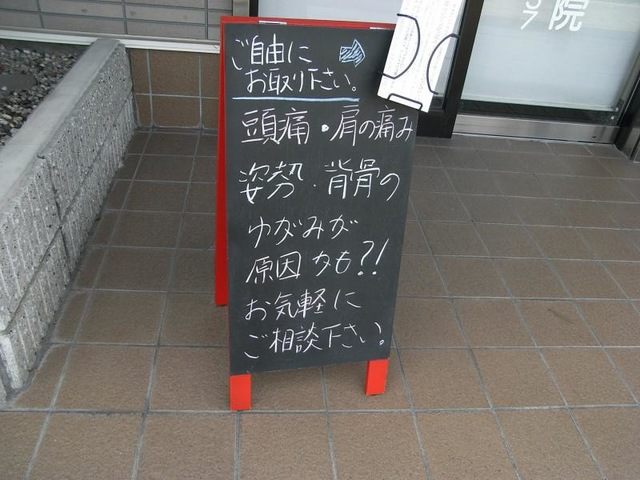 ご自由に
お取り下さい。
頭痛・肩の痛み
姿勢・背骨の
ゆがみが
原因かも?!
お気軽に
ご相談下さい。
院